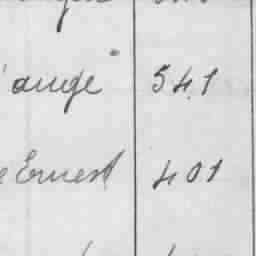 ange 541
e Ernest 401